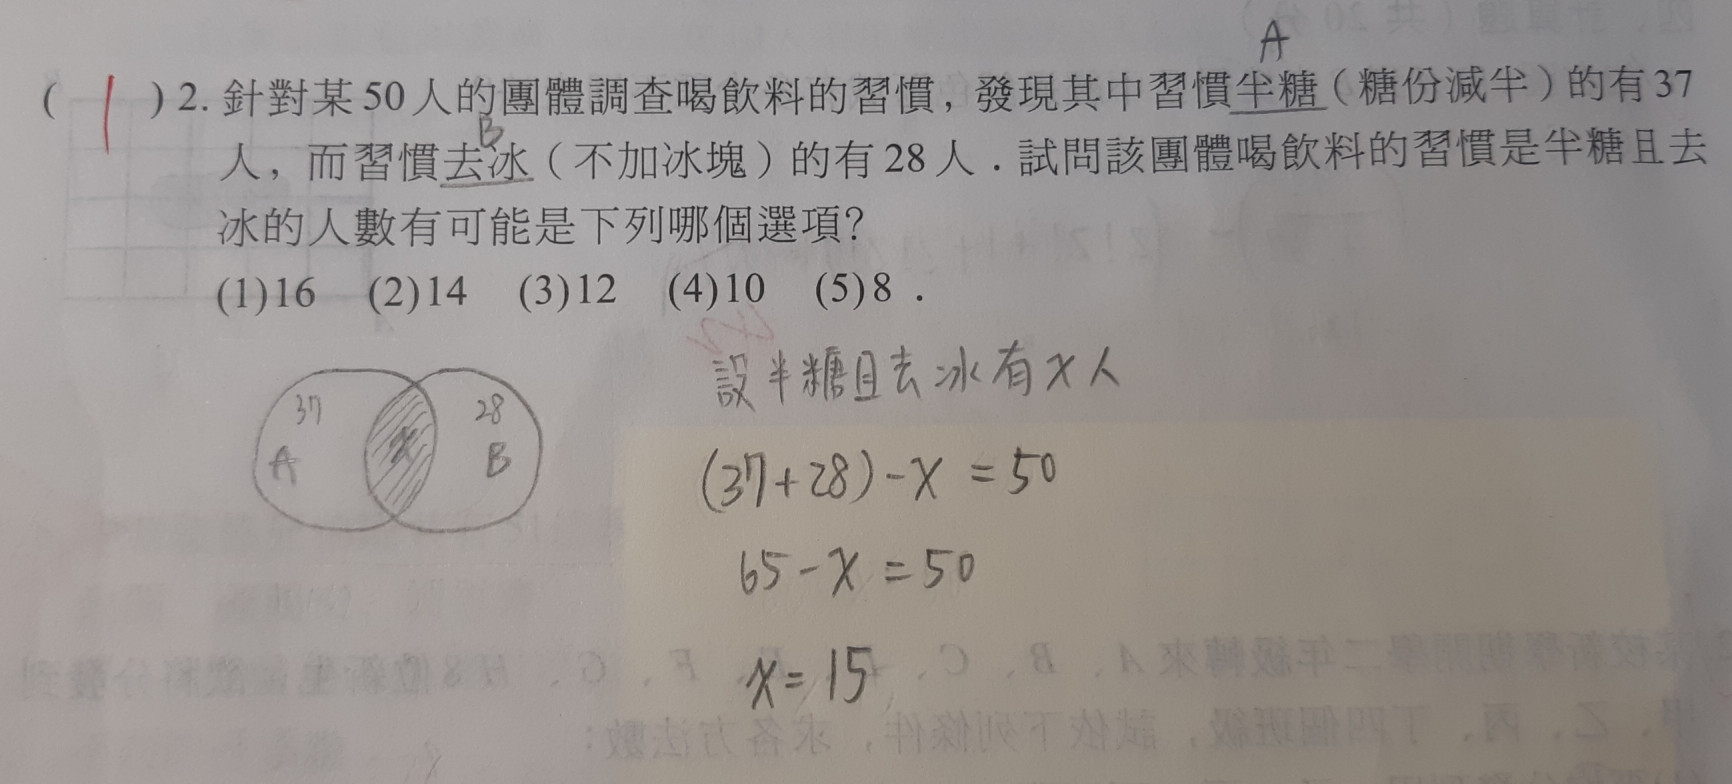 A
( 1 ) 2. 針對某50人的團體調查喝飲料的習慣，發現其中習慣半糖（糖份減半）的有37
B
人，而習慣去冰（不加冰塊）的有28人．試問該團體喝飲料的習慣是半糖且去
冰的人數有可能是下列哪個選項?
(1)16 (2)14 (3)12 (4)10 (5)8．
設半糖且去冰有x人
37 28
A x B
(37+28)-x=50
65-x=50
x=15